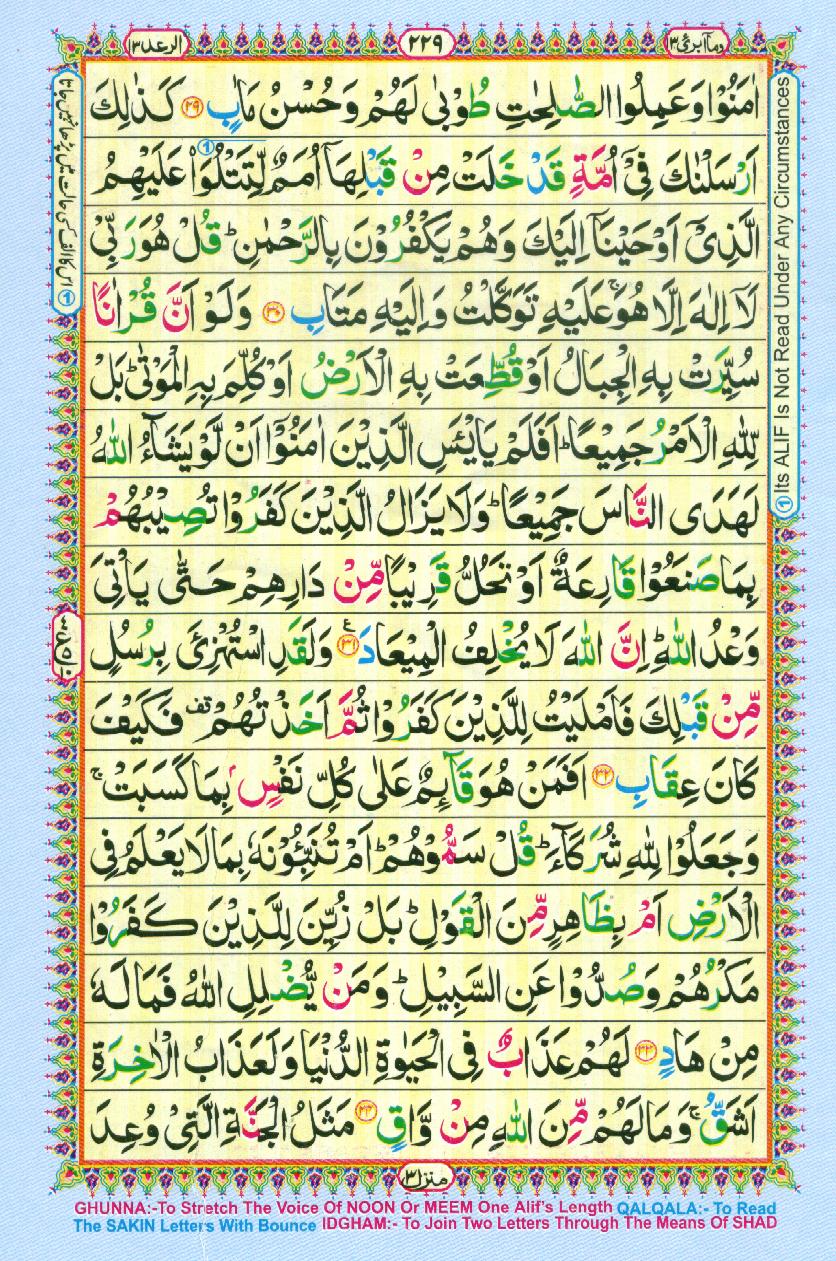 الرعد ١٣
٢٢٩
وما ابرئ ١٣
اٰمَنُوْا وَعَمِلُوا الصّٰلِحٰتِ طُوْبٰى لَهُمْ وَحُسْنُ مَاٰبٍ ﴿٢٩﴾ كَذٰلِكَ
اَرْسَلْنٰكَ فِيْٓ اُمَّةٍ قَدْ خَلَتْ مِنْ قَبْلِهَآ اُمَمٌ لِّتَتْلُوَا۟ عَلَيْهِمُ
الَّذِيْٓ اَوْحَيْنَآ اِلَيْكَ وَهُمْ يَكْفُرُوْنَ بِالرَّحْمٰنِ ؕ قُلْ هُوَ رَبِّيْ
لَآ اِلٰهَ اِلَّا هُوَ ۚ عَلَيْهِ تَوَكَّلْتُ وَاِلَيْهِ مَتَابِ ﴿٣٠﴾ وَلَوْ اَنَّ قُرْاٰنًا
سُيِّرَتْ بِهِ الْجِبَالُ اَوْ قُطِّعَتْ بِهِ الْاَرْضُ اَوْ كُلِّمَ بِهِ الْمَوْتٰى ؕ بَلْ
لِّلّٰهِ الْاَمْرُ جَمِيْعًا ؕ اَفَلَمْ يَايْـَٔسِ الَّذِيْنَ اٰمَنُوْٓا اَنْ لَّوْ يَشَآءُ اللّٰهُ
لَهَدَى النَّاسَ جَمِيْعًا ؕ وَلَا يَزَالُ الَّذِيْنَ كَفَرُوْا تُصِيْبُهُمْ
بِمَا صَنَعُوْا قَارِعَةٌ اَوْ تَحُلُّ قَرِيْبًا مِّنْ دَارِهِمْ حَتّٰى يَاْتِيَ
وَعْدُ اللّٰهِ ؕ اِنَّ اللّٰهَ لَا يُخْلِفُ الْمِيْعَادَ ﴿٣١﴾ ع وَلَقَدِ اسْتُهْزِئَ بِرُسُلٍ
مِّنْ قَبْلِكَ فَاَمْلَيْتُ لِلَّذِيْنَ كَفَرُوْا ثُمَّ اَخَذْتُهُمْ قف فَكَيْفَ
كَانَ عِقَابِ ﴿٣٢﴾ اَفَمَنْ هُوَ قَآئِمٌ عَلٰى كُلِّ نَفْسٍۭ بِمَا كَسَبَتْ ۚ
وَجَعَلُوْا لِلّٰهِ شُرَكَآءَ ؕ قُلْ سَمُّوْهُمْ ؕ اَمْ تُنَبِّـُٔوْنَهٗ بِمَا لَا يَعْلَمُ فِي
الْاَرْضِ اَمْ بِظَاهِرٍ مِّنَ الْقَوْلِ ؕ بَلْ زُيِّنَ لِلَّذِيْنَ كَفَرُوْا
مَكْرُهُمْ وَصُدُّوْا عَنِ السَّبِيْلِ ؕ وَمَنْ يُّضْلِلِ اللّٰهُ فَمَا لَهٗ
مِنْ هَادٍ ﴿٣٣﴾ لَهُمْ عَذَابٌ فِي الْحَيٰوةِ الدُّنْيَا وَلَعَذَابُ الْاٰخِرَةِ
اَشَقُّ ۚ وَمَا لَهُمْ مِّنَ اللّٰهِ مِنْ وَّاقٍ ﴿٣٤﴾ مَثَلُ الْجَنَّةِ الَّتِيْ وُعِدَ
منزل ٣
① Its ALIF Is Not Read Under Any Circumstances
① اس کا الف کسی حالت میں پڑھا نہیں جاتا
GHUNNA:-To Stretch The Voice Of NOON Or MEEM One Alif's Length QALQALA:- To Read
The SAKIN Letters With Bounce IDGHAM:- To Join Two Letters Through The Means Of SHAD